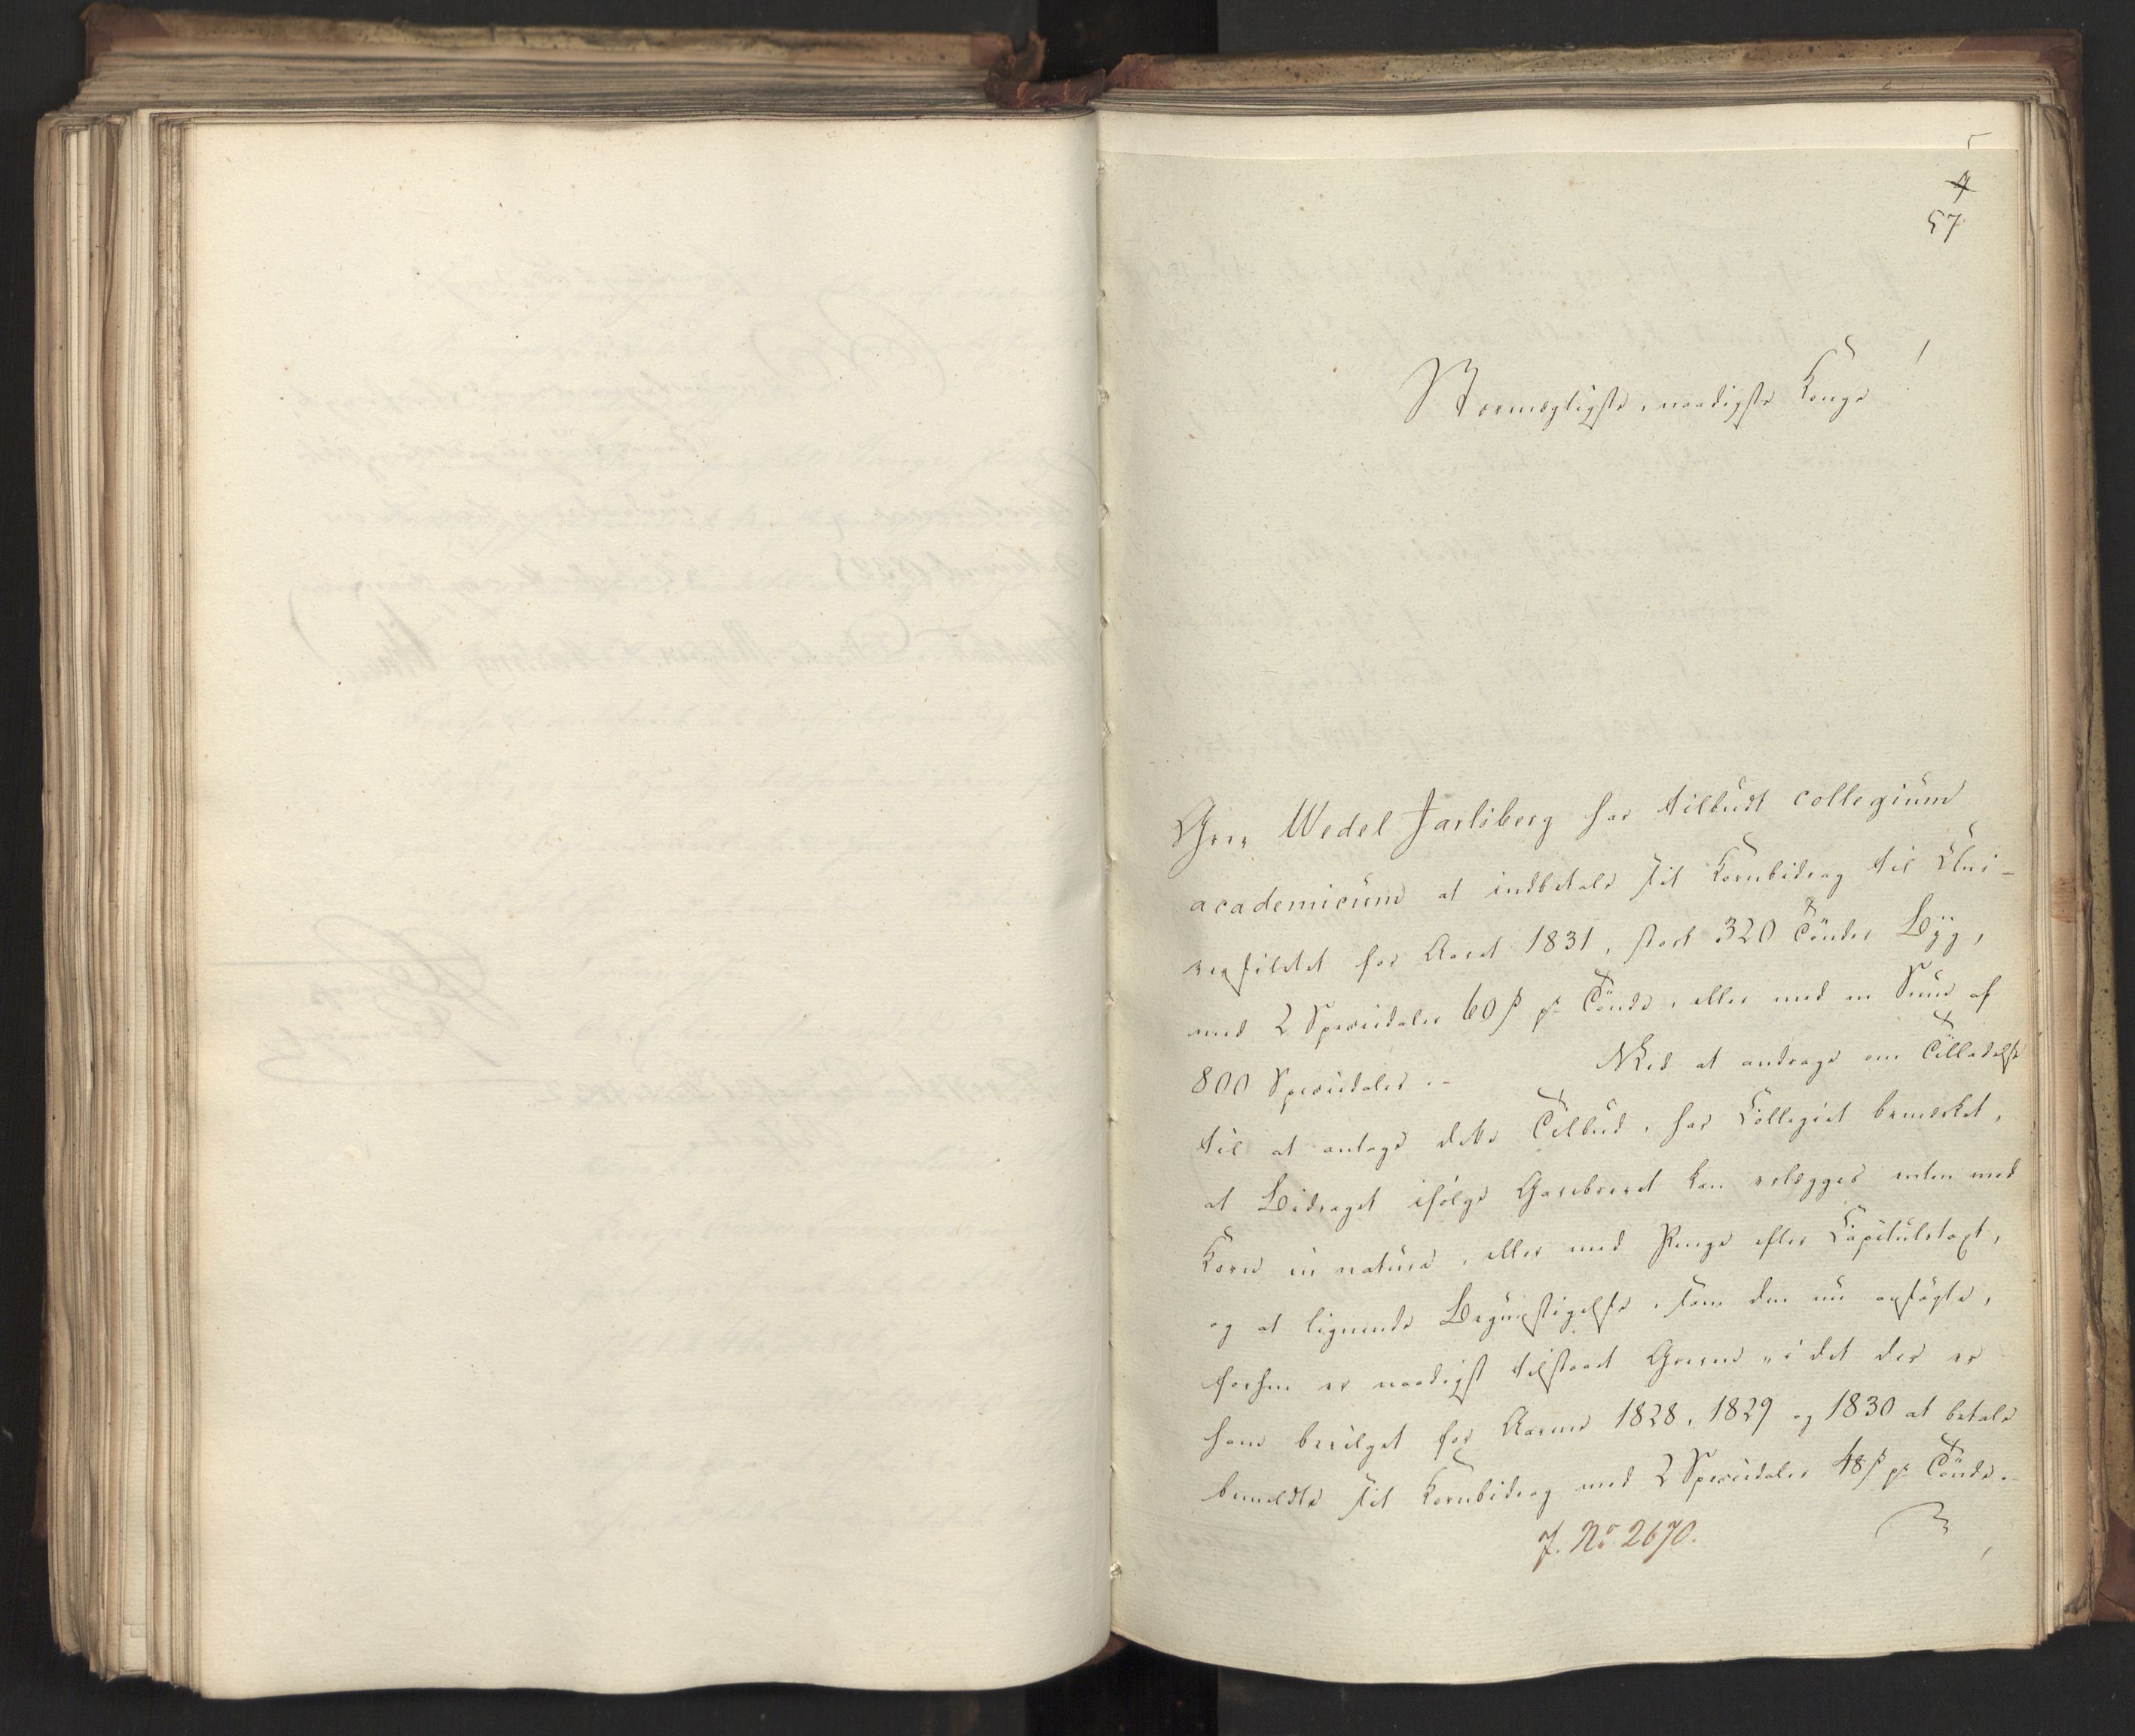 5
7
57
Stormægtigste, naadigste Konge!
Grev Wedel Jarlsberg har tilbudt collegium
academicum at indbetale sit Kornbidrag til Uni-
versitetet for Aaret 1831, stort 320 Tönder Byg,
med 2 Speciedaler 60 ß pr Tönde, eller med en Sum af
800 Speciedaler.- Ved at andrage om Tilladelse
til at antage dette Tilbud, har Collegiet bemærket,
at Bidraget ifölge Gavebrevet kan erlægges enten med
Korn in natura, eller med Penge efter Capitulstaxt,
og at lignende Begunstigelse, som den nu ansögte,
forhen er naadigst tilstaaet Greven, i det der er
ham bevilget for Aarene 1828, 1829 og 1830 at betale
bemeldte sit Kornbidrag med 2 Speciedaler 48 ß pr Tönde.-
J. No 2670.